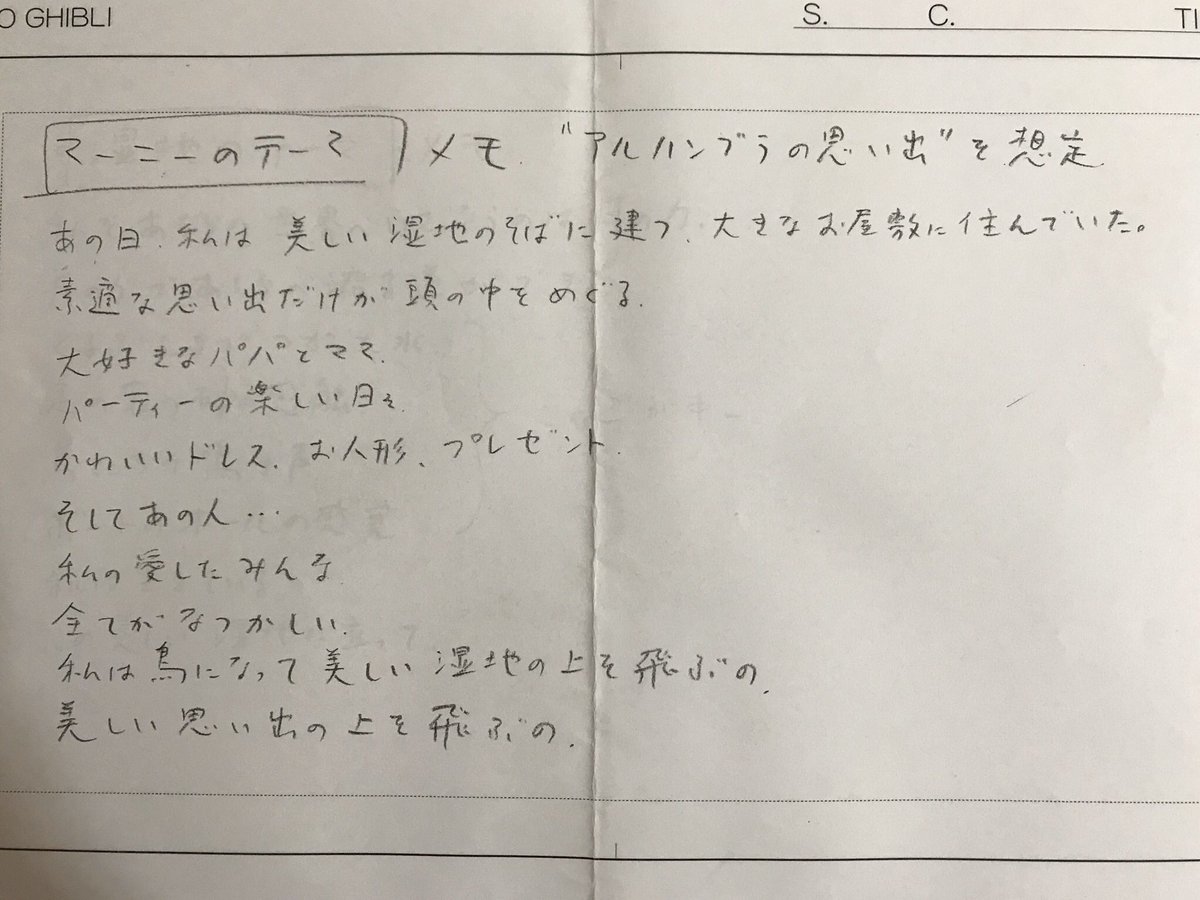 O GHIBLI S. C. TI
マーニーのテーマ メモ. "アルハンブラの思い出"を想定.
あの日、私は 美しい 湿地のそばに 建つ、大きなお屋敷に住んでいた。
素適な思い出だけが 頭の中をめぐる.
大好きなパパとママ.
パーティーの楽しい日々.
かわいいドレス、お人形、プレゼント.
そしてあの人…
私の愛したみんな
全てがなつかしい.
私は鳥になって美しい湿地の上を飛ぶの.
美しい思い出の上を飛ぶの.